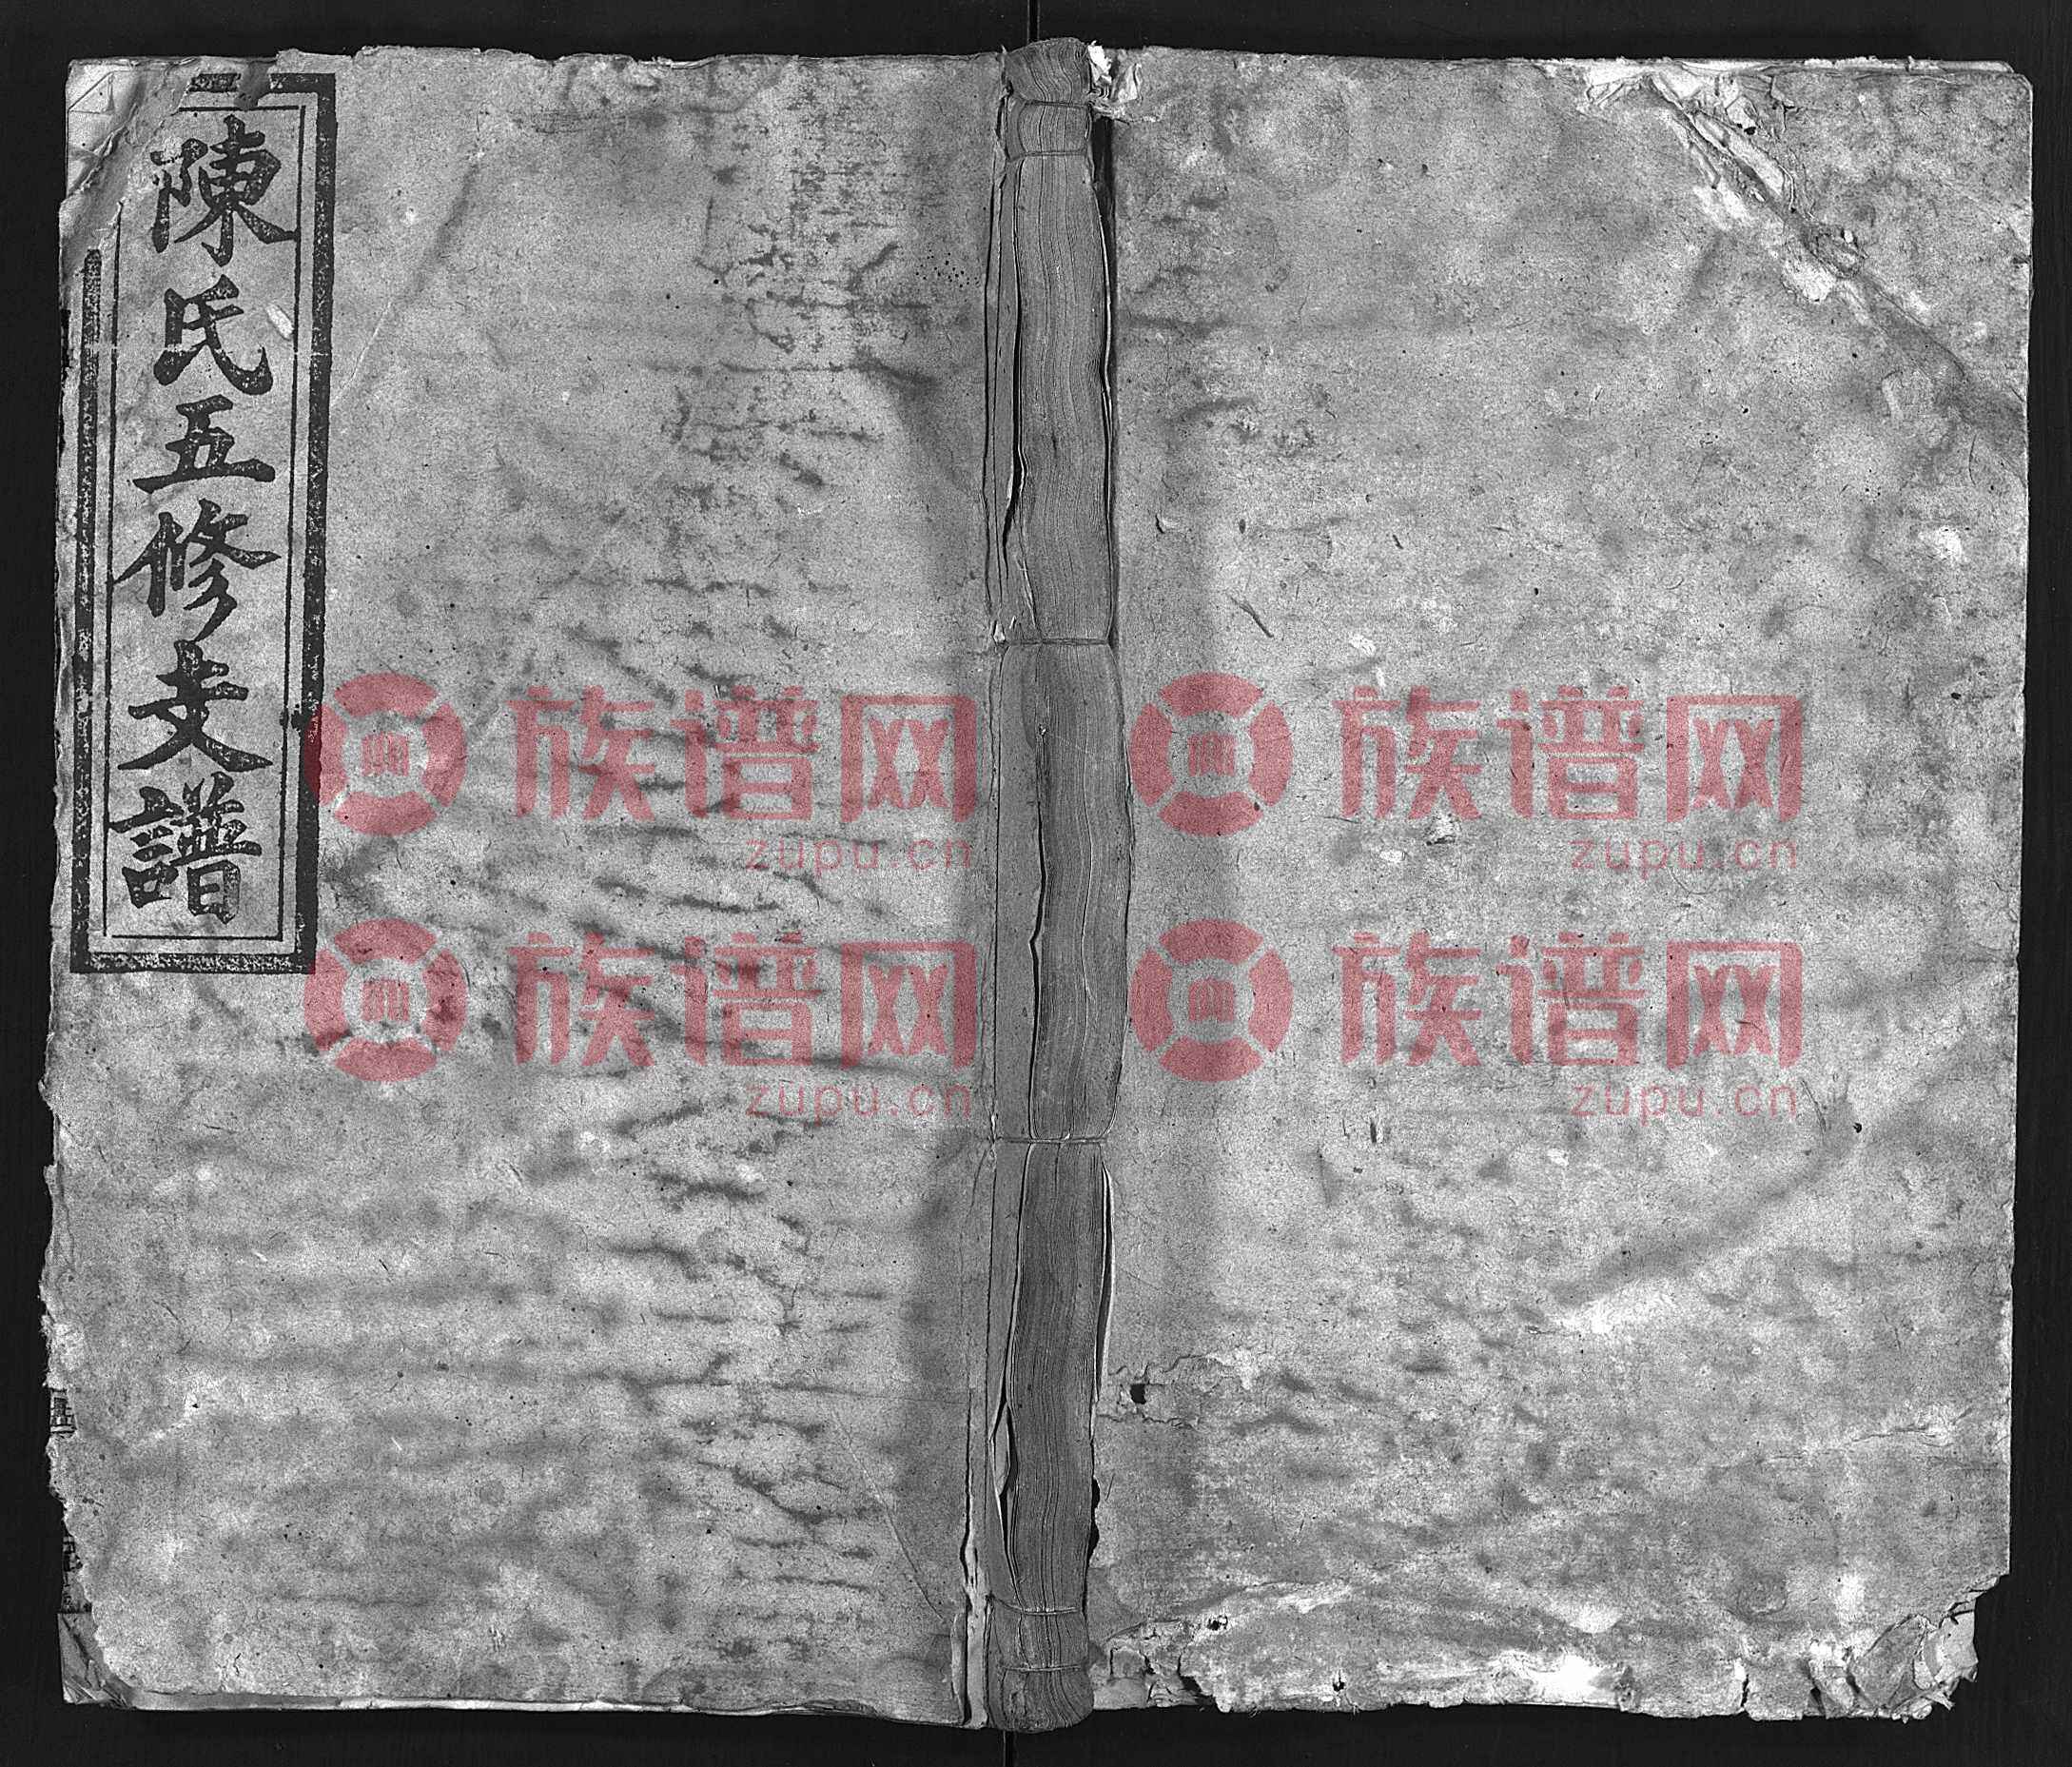 陳氏五修支譜
族谱网 族谱网
zupu.cn zupu.cn
族谱网 族谱网
zupu.cn zupu.cn